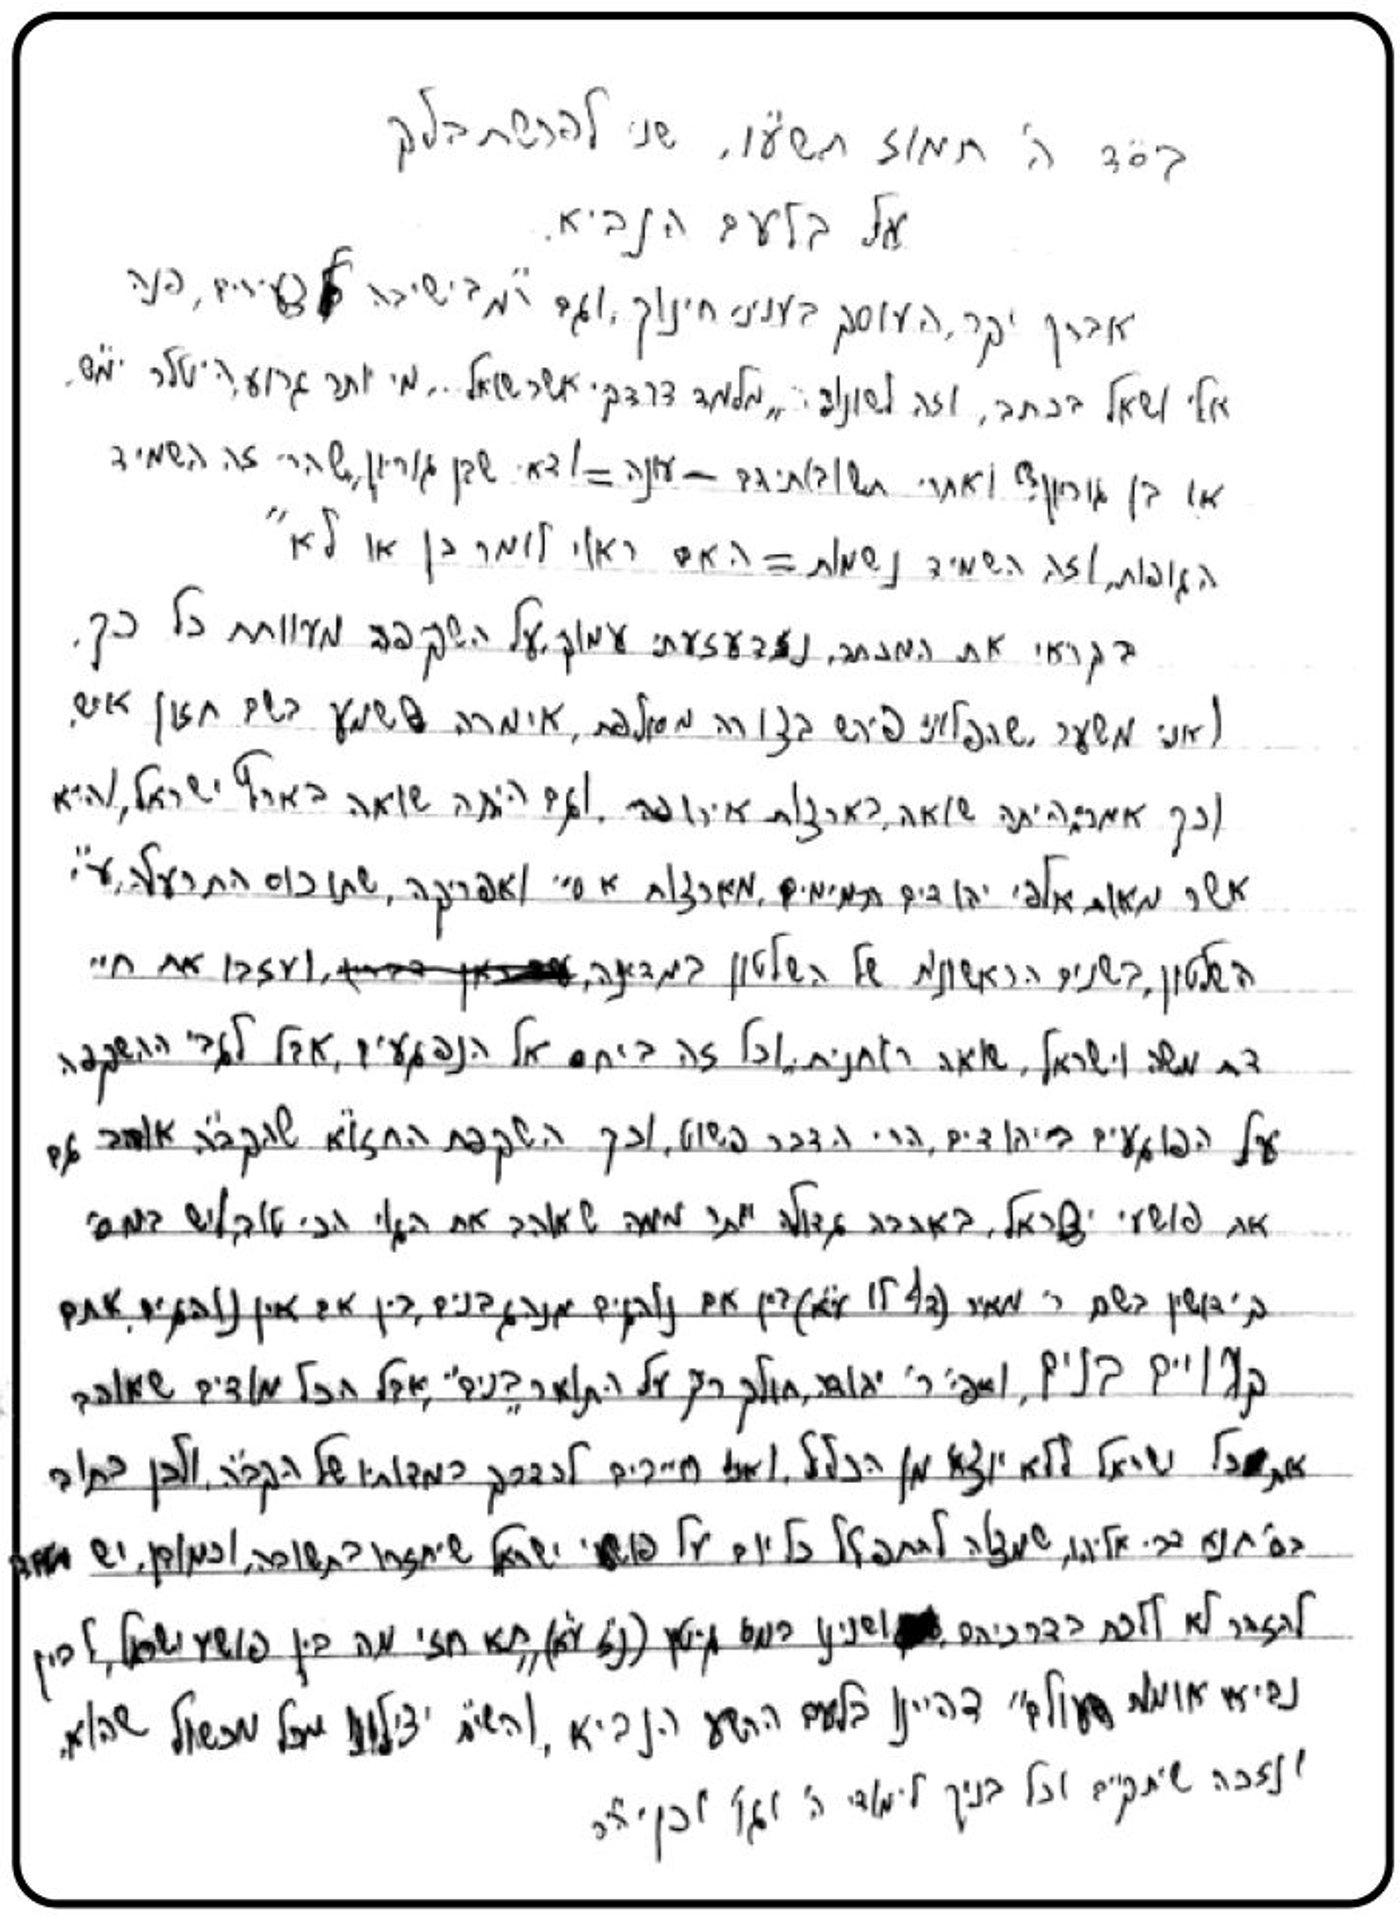 בס"ד ה' תמוז תשע"ו, שני לפרשת בלק
על בלעם הנביא.
אברך יקר, העוסק בעניני חינוך, וגם ר"מ בישיבה לצעירים, פנה
אלי ושאל בכתב, וזה לשונו: "מלמד דרדקי אשר שואל... מי יותר גרוע, היטלר ימ"ש,
או בן גוריון? ואחרי תשובתיהם – עונה = ודאי שבן גוריון, שהרי זה השמיד
הגופות, וזה השמיד נשמות = האם ראוי לומר כן או לא"
בקראי את המכתב, נזדעזעתי עמוק, על השקפה מעוותת כל כך.
ואני משער, שהפלוני פירש בצורה מסולפת, אימרה ששמע בשם חזון איש,
וכך אמר: היתה שואה, בארצות אירופה, וגם היתה שואה בארץ ישראל, והיא
אשר מאות אלפי יהודים תמימים, מארצות אסיי ואפריקה, שתו כוס התרעלה, ע"י
השלטון, בשנים הראשונות של השלטון במדינה, ועזבו את חיי
דת משה וישראל, שואה רוחנית, וכל זה ביחס אל הנפגעים, אבל לגבי ההשקפה
על הפוגעים ביהודים, הרי הדבר פשוט, וכך השקפת החזו"א שהקב"ה אוהב גם
את פושעי ישראל, באהבה גדולה יותר ממה שאוהב את הגוי הכי טוב, ויש במס'
קידושין בשם ר' מאיר (דף לו ע"א) בין אם נוהגים מנהג בנים, בין אם אין נוהגים, אתם
קרויים בנים, ואפי' ר' יהודה, חולק רק על התואר "בנים", אבל הכל מודים שאוהב
את כל ישראל ללא יוצא מן הכלל, ואנו חייבים לדבק במדותיו של הקב"ה, ולכן כתוב
בס' תנא דבי אליהו, שמצוה להתפלל כל יום על פושעי ישראל שיחזרו בתשובה, וכמובן, יש
להזהר לא ללכת בדרכיהם, ושנינו במס' גיטין (נ"ז ע"א) "תא חזי מה בין פושעי ישראל, לבין
נביאי אומות העולם" דהיינו בלעם הרשע הנביא, והשי"ת יצילנו מכל מכשול שהוא,
ונזכה שיתקיים וכל בניך לימודי ה' וגו' וכן יה"ר